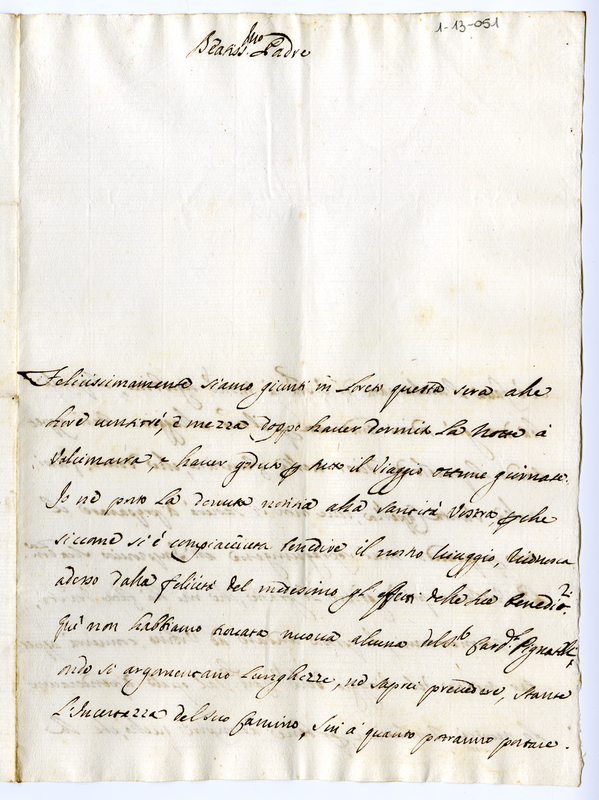 1-13-051
Beatiss.mo Padre
Felicissimamente siamo giunti in Loreto questa sera alle
hore ventitré, e mezza doppo haver dormito la Notte à
Valcimara e haver goduto per tutto il viaggio ottime giornate.
Io ne porto la dovuta notitia alla Santità Vostra perche
siccome si è compiaciuta benedire il nostro viaggio,
adesso dalla felicità del medesimo gl'effetti delle sue benedit.ni
Quì non habbiamo trovata nuova alcuna del S.r Card.l
onde si argomentano lunghezze, nè saprei prevedere, stante
L'Incertezza del suo Camino, sin à quanto potranno portare.